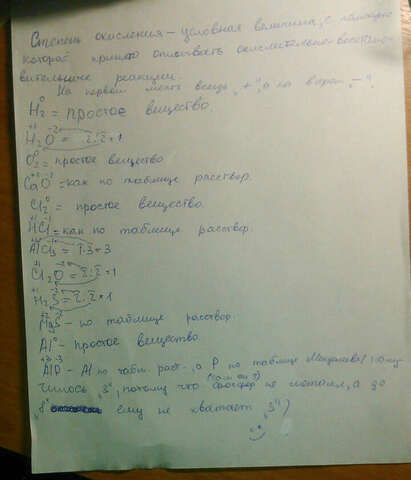 Степень окисления - условная величина, с помощью
которой принято описывать окислительно-восстано-
вительные реакции.
На первом месте всегда „+", а на втором „-".
H₂⁰ = простое вещество.
H₂⁺¹O⁻² = 2:2=1
O₂⁰ = простое вещество
Ca⁺²O⁻² = как по таблице раствор.
Cl₂⁰ = простое вещество.
H⁺¹Cl⁻¹ = как по таблице раствор.
Al⁺³Cl₃⁻¹ = 1·3=3
Cl₂⁺¹O⁻² = 2:2=1
H₂⁺¹S⁻² = 2:2=1
Mg⁺²S⁻² - по таблице раствор.
Al⁰ - простое вещество.
Al⁺³P⁻³ - Al по табл. раст., а P по таблице Менделеева (полу-
чилось „3", потому что фосфор не металл, а до
„8" ему не хватает „3")